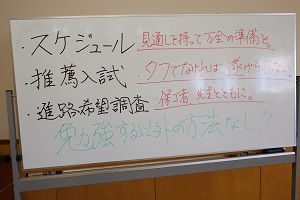 ・スケジュール 見通しを持って万全の準備を。
・推薦入試 タフでなければ
・進路希望調査 保護者、先生とともに。
勉強する以外の方法なし!!